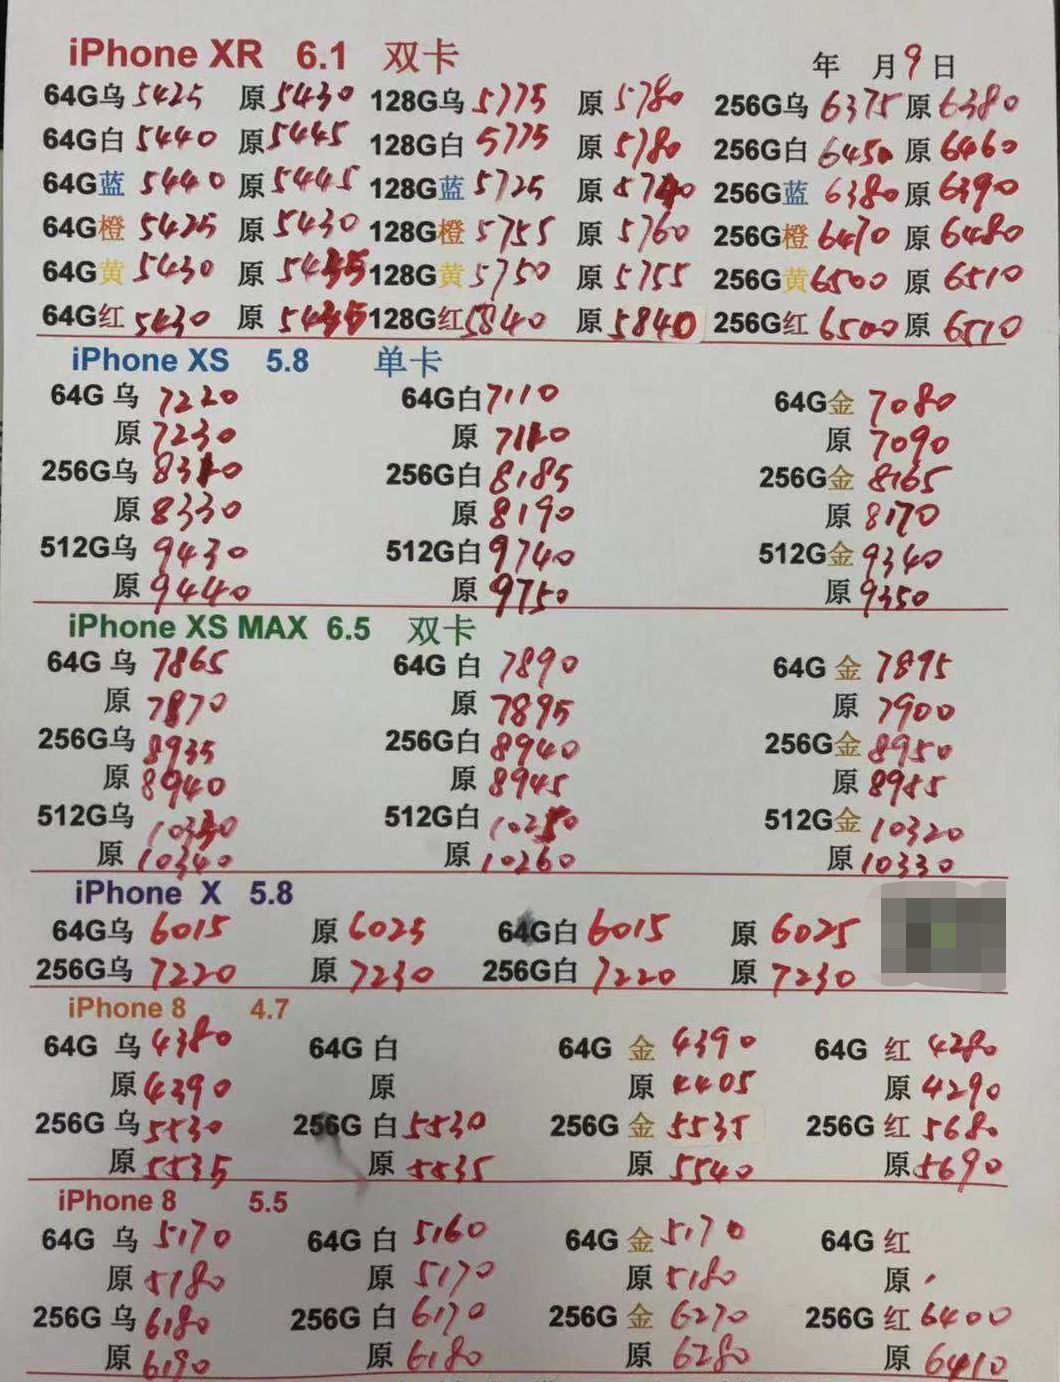 iPhone XR 6.1 双卡 年 月9日
64G乌 5425 原5430 128G乌 5775 原 5780 256G乌 6375 原 6380
64G白 5440 原 5445 128G白 5775 原 5780 256G白 6450 原 6460
64G蓝 5440 原 5445 128G蓝 5725 原 256G蓝 6380 原 6390
64G橙 5425 原 5430 128G橙 5755 原 5760 256G橙 6470 原 6480
64G黄 5430 原 5435 128G黄 5750 原 5755 256G黄 6500 原 6510
64G红 5430 原 5435 128G红 5840 原 5840 256G红 6500 原 6510
iPhone XS 5.8 单卡
64G 乌 7220 64G白 7110 64G金 7080
原 7230 原 7120 原 7090
256G乌 256G白 8185 256G金 8165
原 8330 原 8190 原 8170
512G乌 9430 512G白 9740 512G金 9340
原 9440 原 9750 原 9350
iPhone XS MAX 6.5 双卡
64G 乌 7865 64G 白 7890 64G 金 7895
原 7870 原 7895 原 7900
256G乌 8935 256G白 8940 256G金 8950
原 8940 原 8945 原 8955
512G乌 10330 512G白 10250 512G金 10320
原 10340 原 10260 原 10330
iPhone X 5.8
64G乌 6015 原 6025 64G白 6015 原 6025
256G乌 7220 原 7230 256G白 7220 原 7230
iPhone 8 4.7
64G 乌 4380 64G 白 64G 金 4390 64G 红 4280
原 4390 原 原 4405 原 4290
256G 乌 5530 256G 白 5530 256G 金 5535 256G 红 5680
原 5535 原 5535 原 5540 原 5690
iPhone 8 5.5
64G 乌 5170 64G 白 5160 64G 金 5170 64G 红
原 5180 原 5170 原 5180 原
256G 乌 6180 256G 白 6170 256G 金 6270 256G 红 6400
原 6190 原 6180 原 6280 原 6410